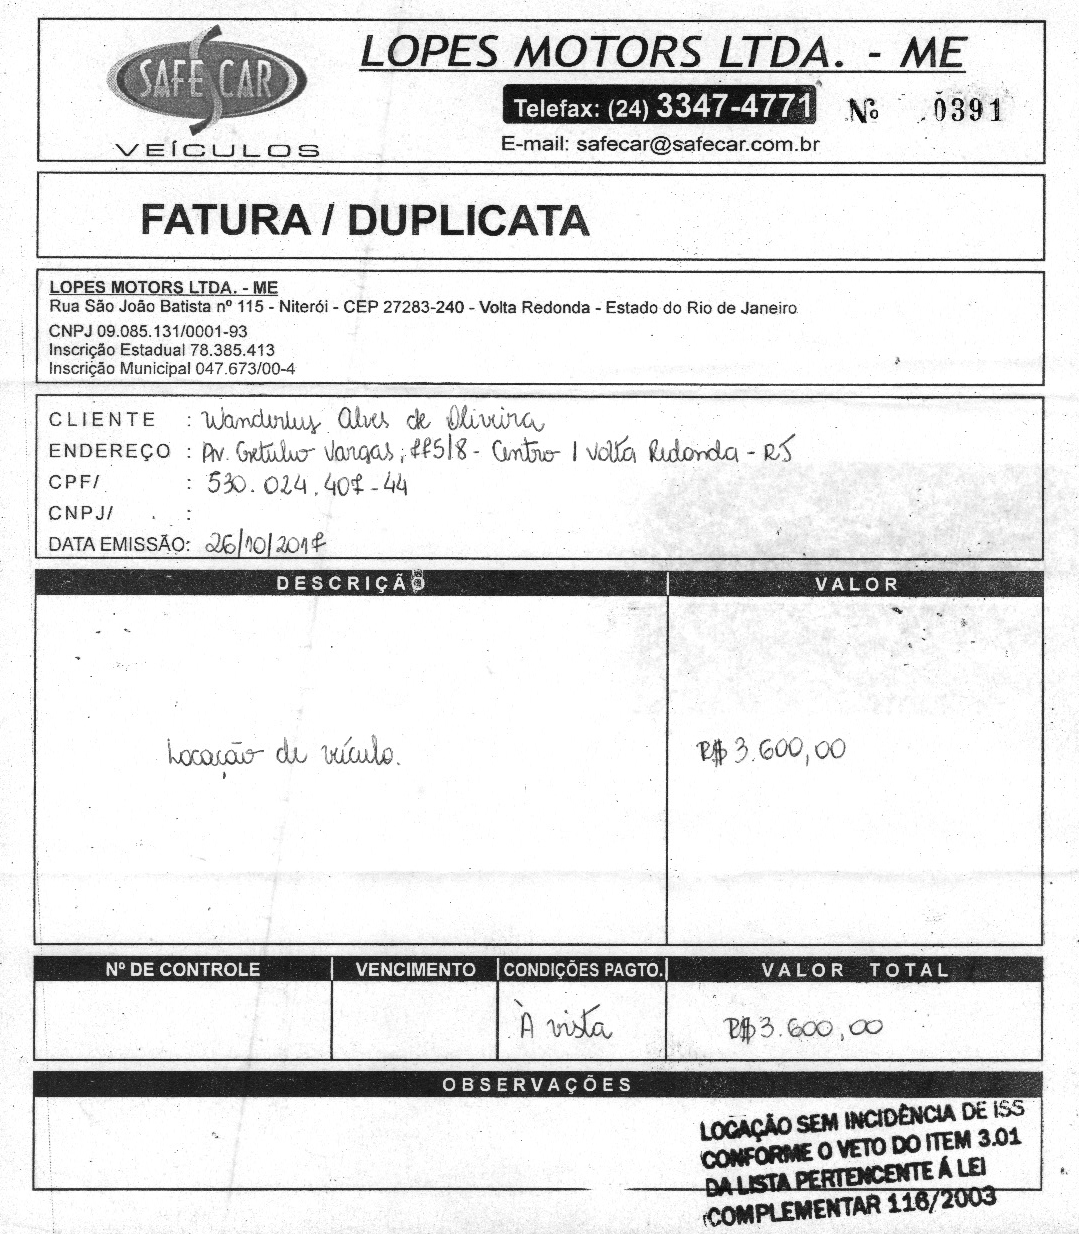 SAFE CAR
VEÍCULOS
LOPES MOTORS LTDA. - ME
Telefax: (24) 3347-4771
Nº 0391
E-mail: safecar@safecar.com.br
FATURA / DUPLICATA
LOPES MOTORS LTDA. - ME
Rua São João Batista nº 115 - Niterói - CEP 27283-240 - Volta Redonda - Estado do Rio de Janeiro
CNPJ 09.085.131/0001-93
Inscrição Estadual 78.385.413
Inscrição Municipal 047.673/00-4
CLIENTE : Wanderley Alves de Oliveira
ENDEREÇO : Av. Getulio Vargas, 775/8 - Centro / Volta Redonda - RJ
CPF/ : 530.024.407-44
CNPJ/ :
DATA EMISSÃO: 26/10/2017
DESCRIÇÃO VALOR
Locação de veículo. R$ 3.600,00
Nº DE CONTROLE VENCIMENTO CONDIÇÕES PAGTO. VALOR TOTAL
À vista R$ 3.600,00
OBSERVAÇÕES
LOCAÇÃO SEM INCIDÊNCIA DE ISS
CONFORME O VETO DO ITEM 3.01
DA LISTA PERTENCENTE Á LEI
COMPLEMENTAR 116/2003